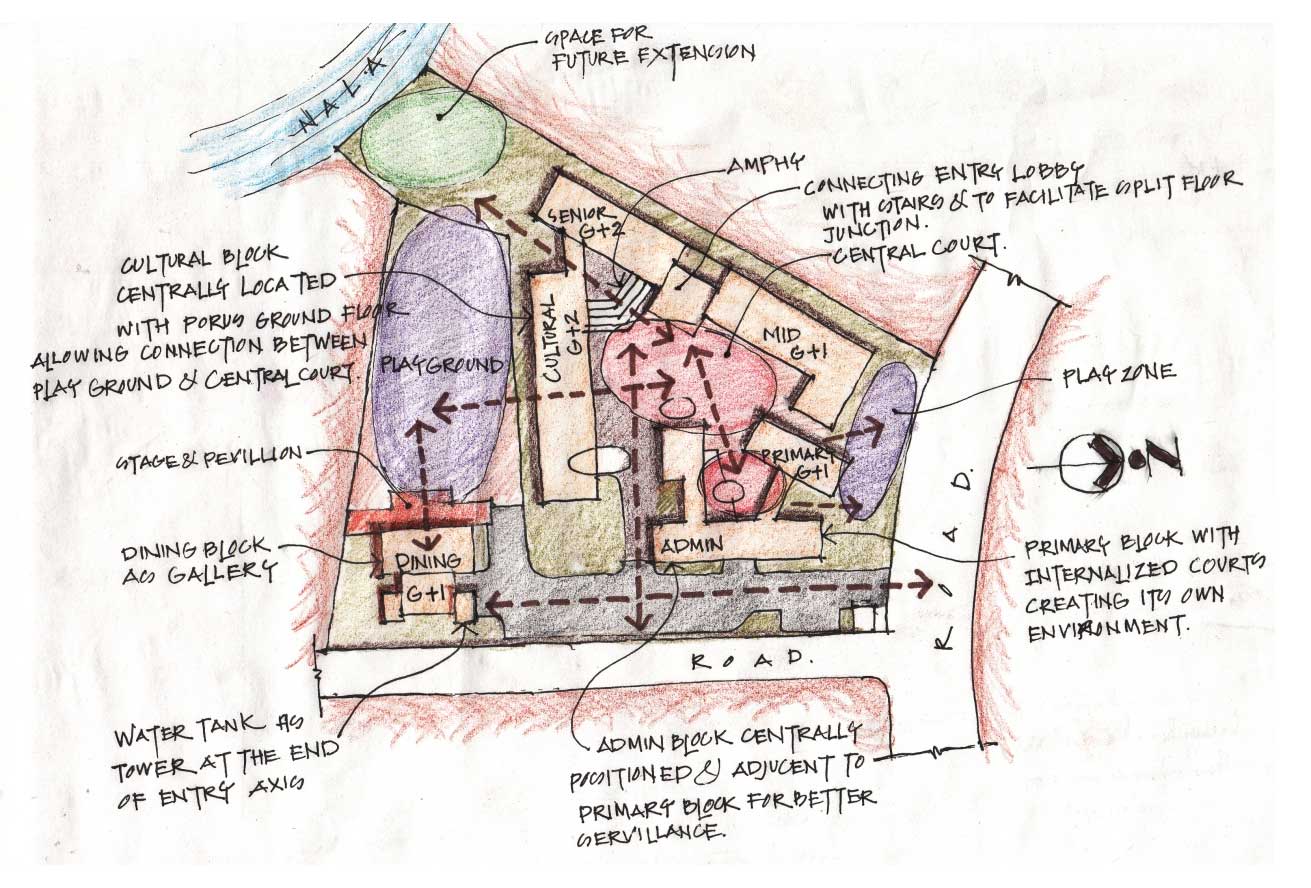 SPACE FOR
FUTURE EXTENSION
NALA
AMPHY
CONNECTING ENTRY LOBBY
WITH STAIRS & TO FACILITATE SPLIT FLOOR
JUNCTION.
CENTRAL COURT.
SENIOR
G+2
CULTURAL BLOCK
CENTRALLY LOCATED
WITH PORUS GROUND FLOOR
ALLOWING CONNECTION BETWEEN
PLAY GROUND & CENTRAL COURT.
CULTURAL
G+2
MID
G+1
PLAYGROUND
PLAY ZONE
STAGE & PEVILLION
PRIMARY
G+1
N
ROAD.
DINING BLOCK
AS GALLERY
DINING
G+1
ADMIN
PRIMARY BLOCK WITH
INTERNALIZED COURTS
CREATING ITS OWN
ENVIRONMENT.
ROAD.
WATER TANK AS
TOWER AT THE END
OF ENTRY AXIS
ADMIN BLOCK CENTRALLY
POSITIONED & ADJUCENT TO
PRIMARY BLOCK FOR BETTER
SERVILLANCE.